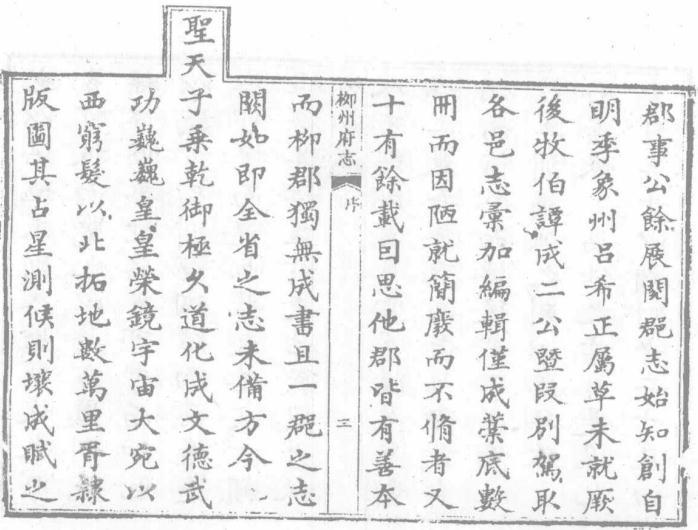 郡事公餘展閱郡志始知創自
明季象州呂希正屬草未就厥
後牧伯譚成二公暨叚別駕取
各邑志彙加編輯僅成藁底數
冊而因陋就簡廢而不脩者又
十有餘載囙思他郡皆有善本
柳州府志 序 三
而柳郡獨無成書且一郡之志
闕如即全省之志未備方今
聖天子乗乾御極久道化成文德武
功巍巍皇皇榮鏡宇宙大宛以
西窮髮以北拓地數萬里胥隸
版圖其占星測候則壤成賦之